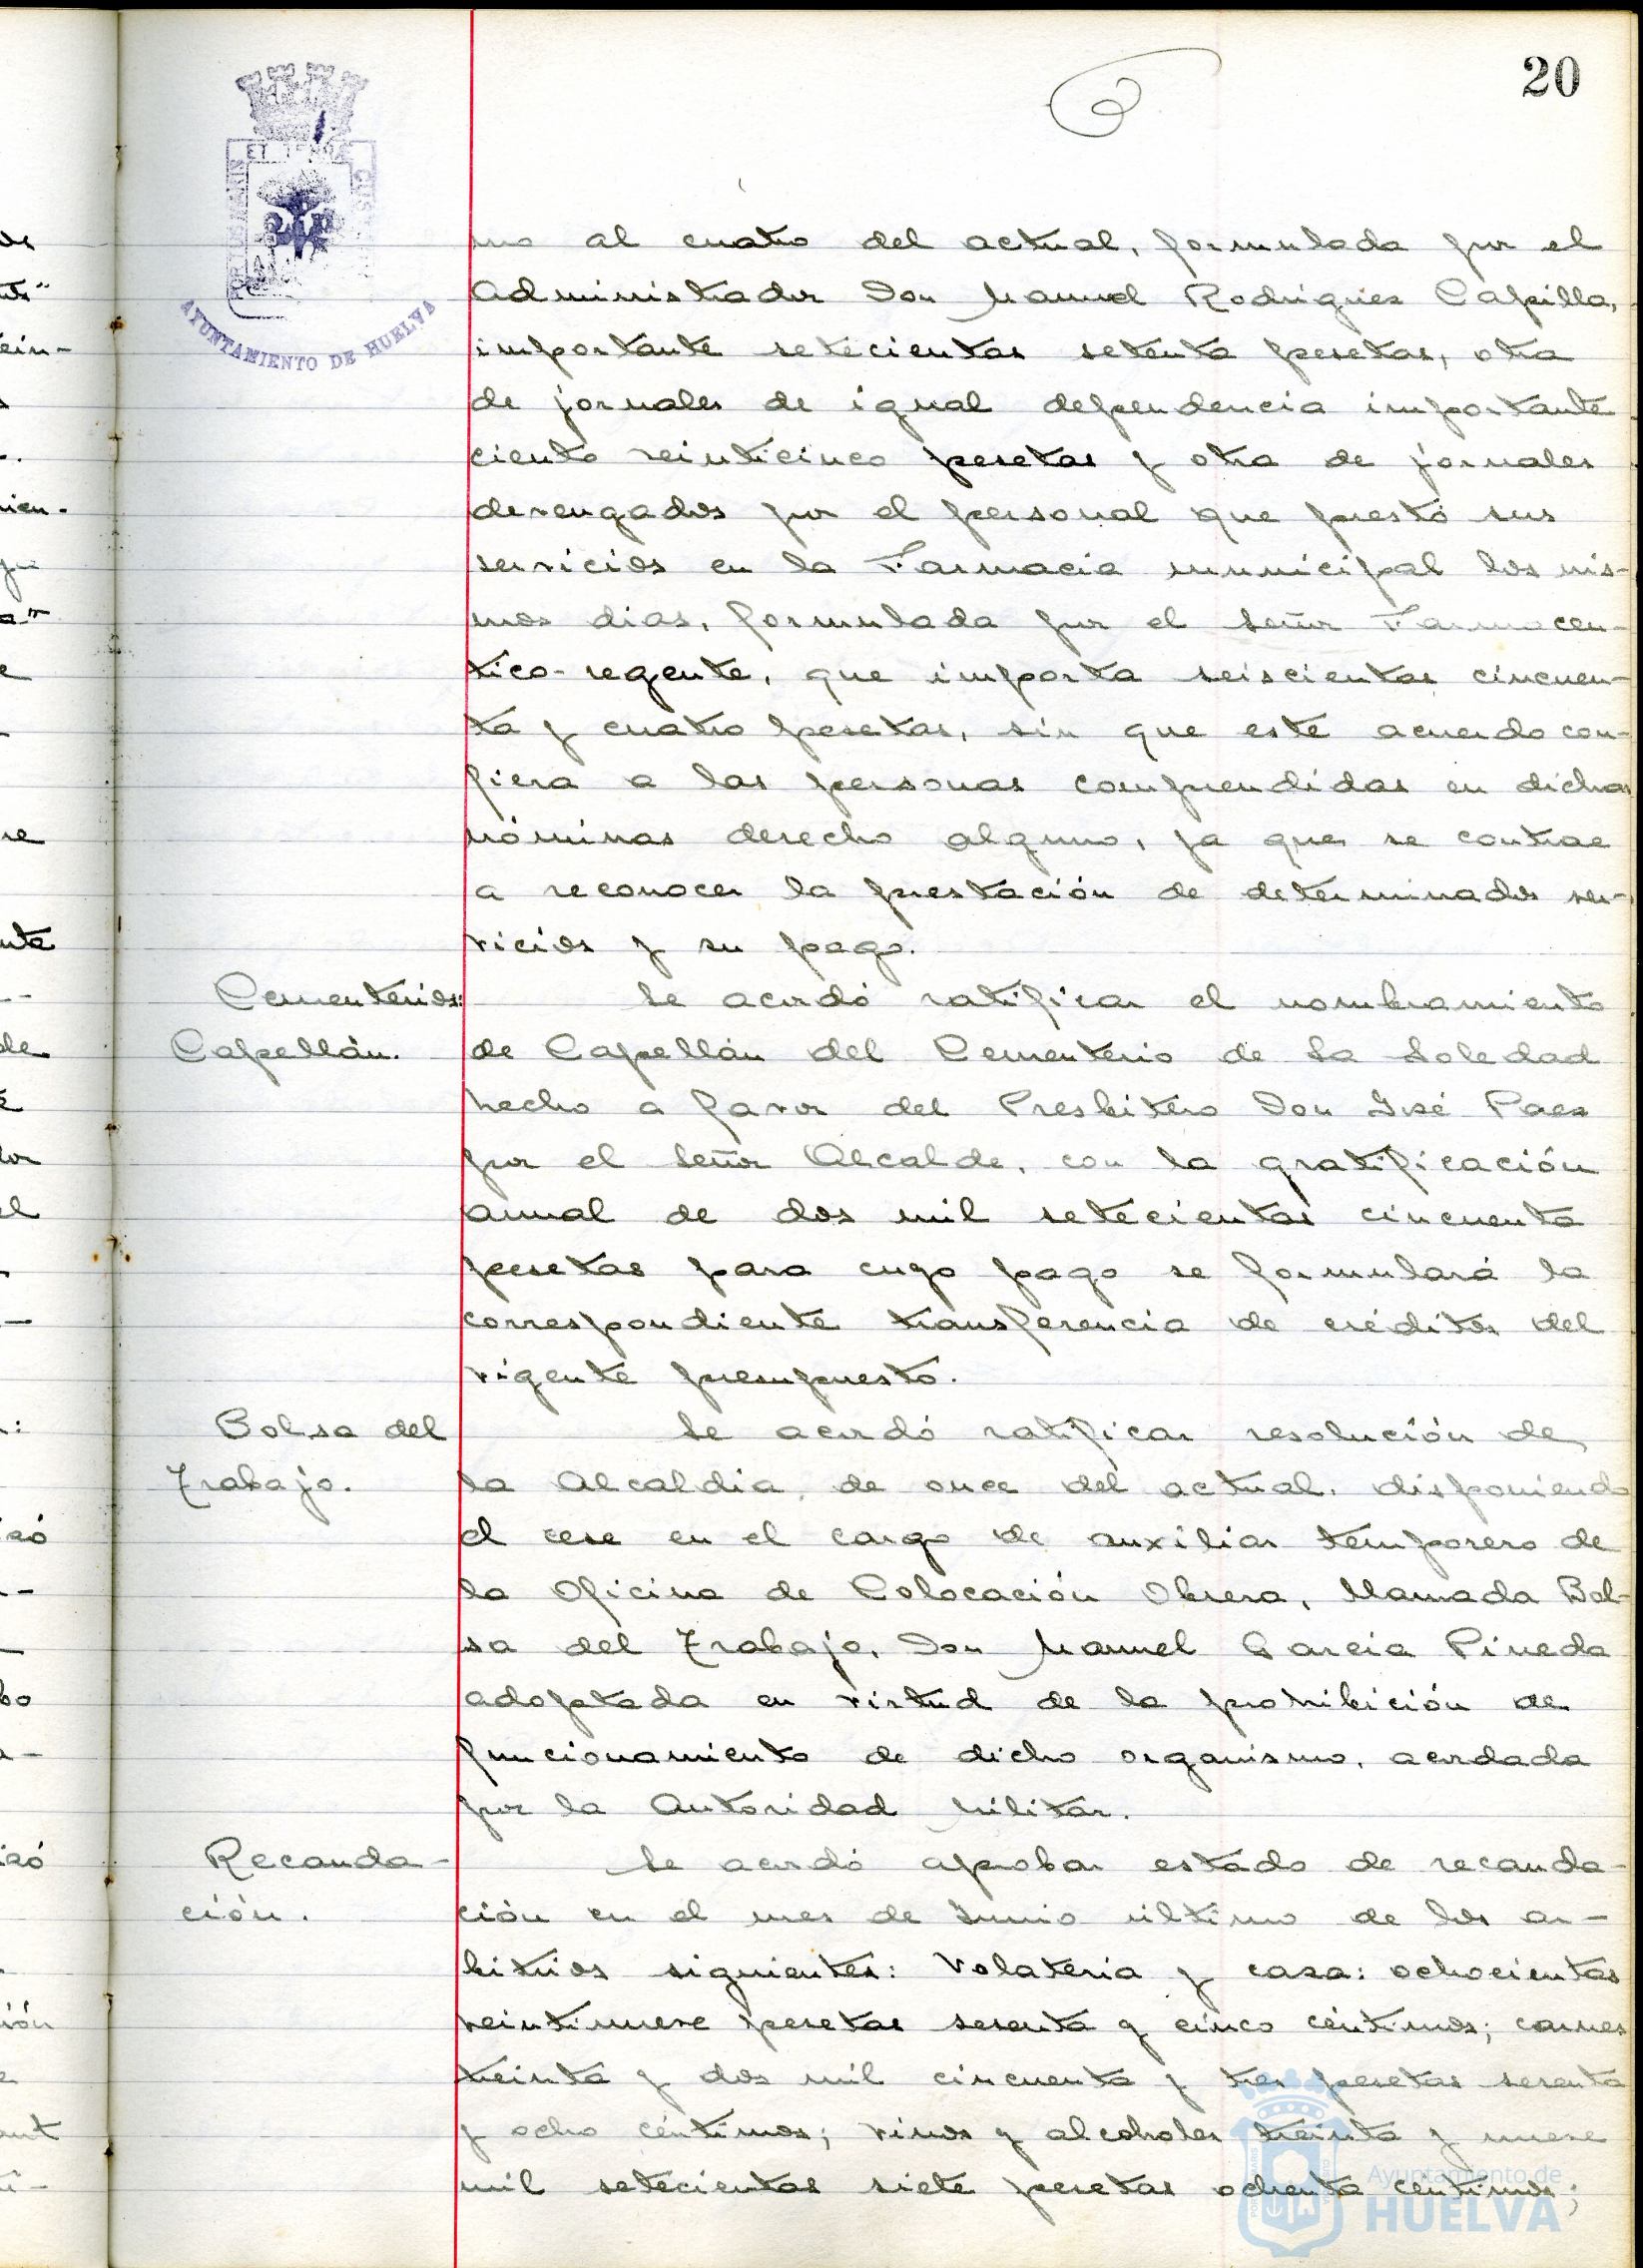 20
AYUNTAMIENTO DE HUELVA
mo al cuatro del actual, formulada por el
Administrador Don Manuel Rodríguez Capilla,
importante setecientas setenta pesetas, otra
de jornales de igual dependencia importante
ciento veinticinco pesetas y otra de jornales
devengados por el personal que prestó sus
servicios en la Farmacia municipal los mis-
mos dias, formulada por el señor Farmaceu-
tico-regente, que importa seiscientas cincuen-
ta y cuatro pesetas, sin que este acuerdo con-
fiera a las personas comprendidas en dichas
nóminas derecho alguno, ya que se contrae
a reconocer la prestación de determinados ser-
vicios y su pago.
Cementerios:
Capellán.
Se acordó ratificar el nombramiento
de Capellán del Cementerio de La Soledad
hecho a favor del Presbitero Don José Paez
por el Señor Alcalde, con la gratificación
anual de dos mil setecientas cincuenta
pesetas para cuyo pago se formulará la
correspondiente transferencia de créditos del
vigente presupuesto.
Bolsa del
Trabajo.
Se acordó ratificar resolución de
la Alcaldia, de once del actual, disponiendo
el cese en el cargo de auxiliar temporero de
la Oficina de Colocación Obrera, llamada Bol-
sa del Trabajo, Don Manuel Garcia Pineda
adoptada en virtud de la prohibición de
funcionamiento de dicho organismo, acordada
por la Autoridad Militar.
Recauda-
ción.
Se acordó aprobar estado de recauda-
ción en el mes de Junio último de los ar-
bitrios siguientes: Volateria y caza: ochocientas
veintinueve pesetas sesenta y cinco céntimos; carnes
treinta y dos mil cincuenta y tres pesetas sesenta
y ocho céntimos; vinos y alcoholes treinta y nueve
mil setecientas siete pesetas ochenta centimos;
Ayuntamiento de
HUELVA